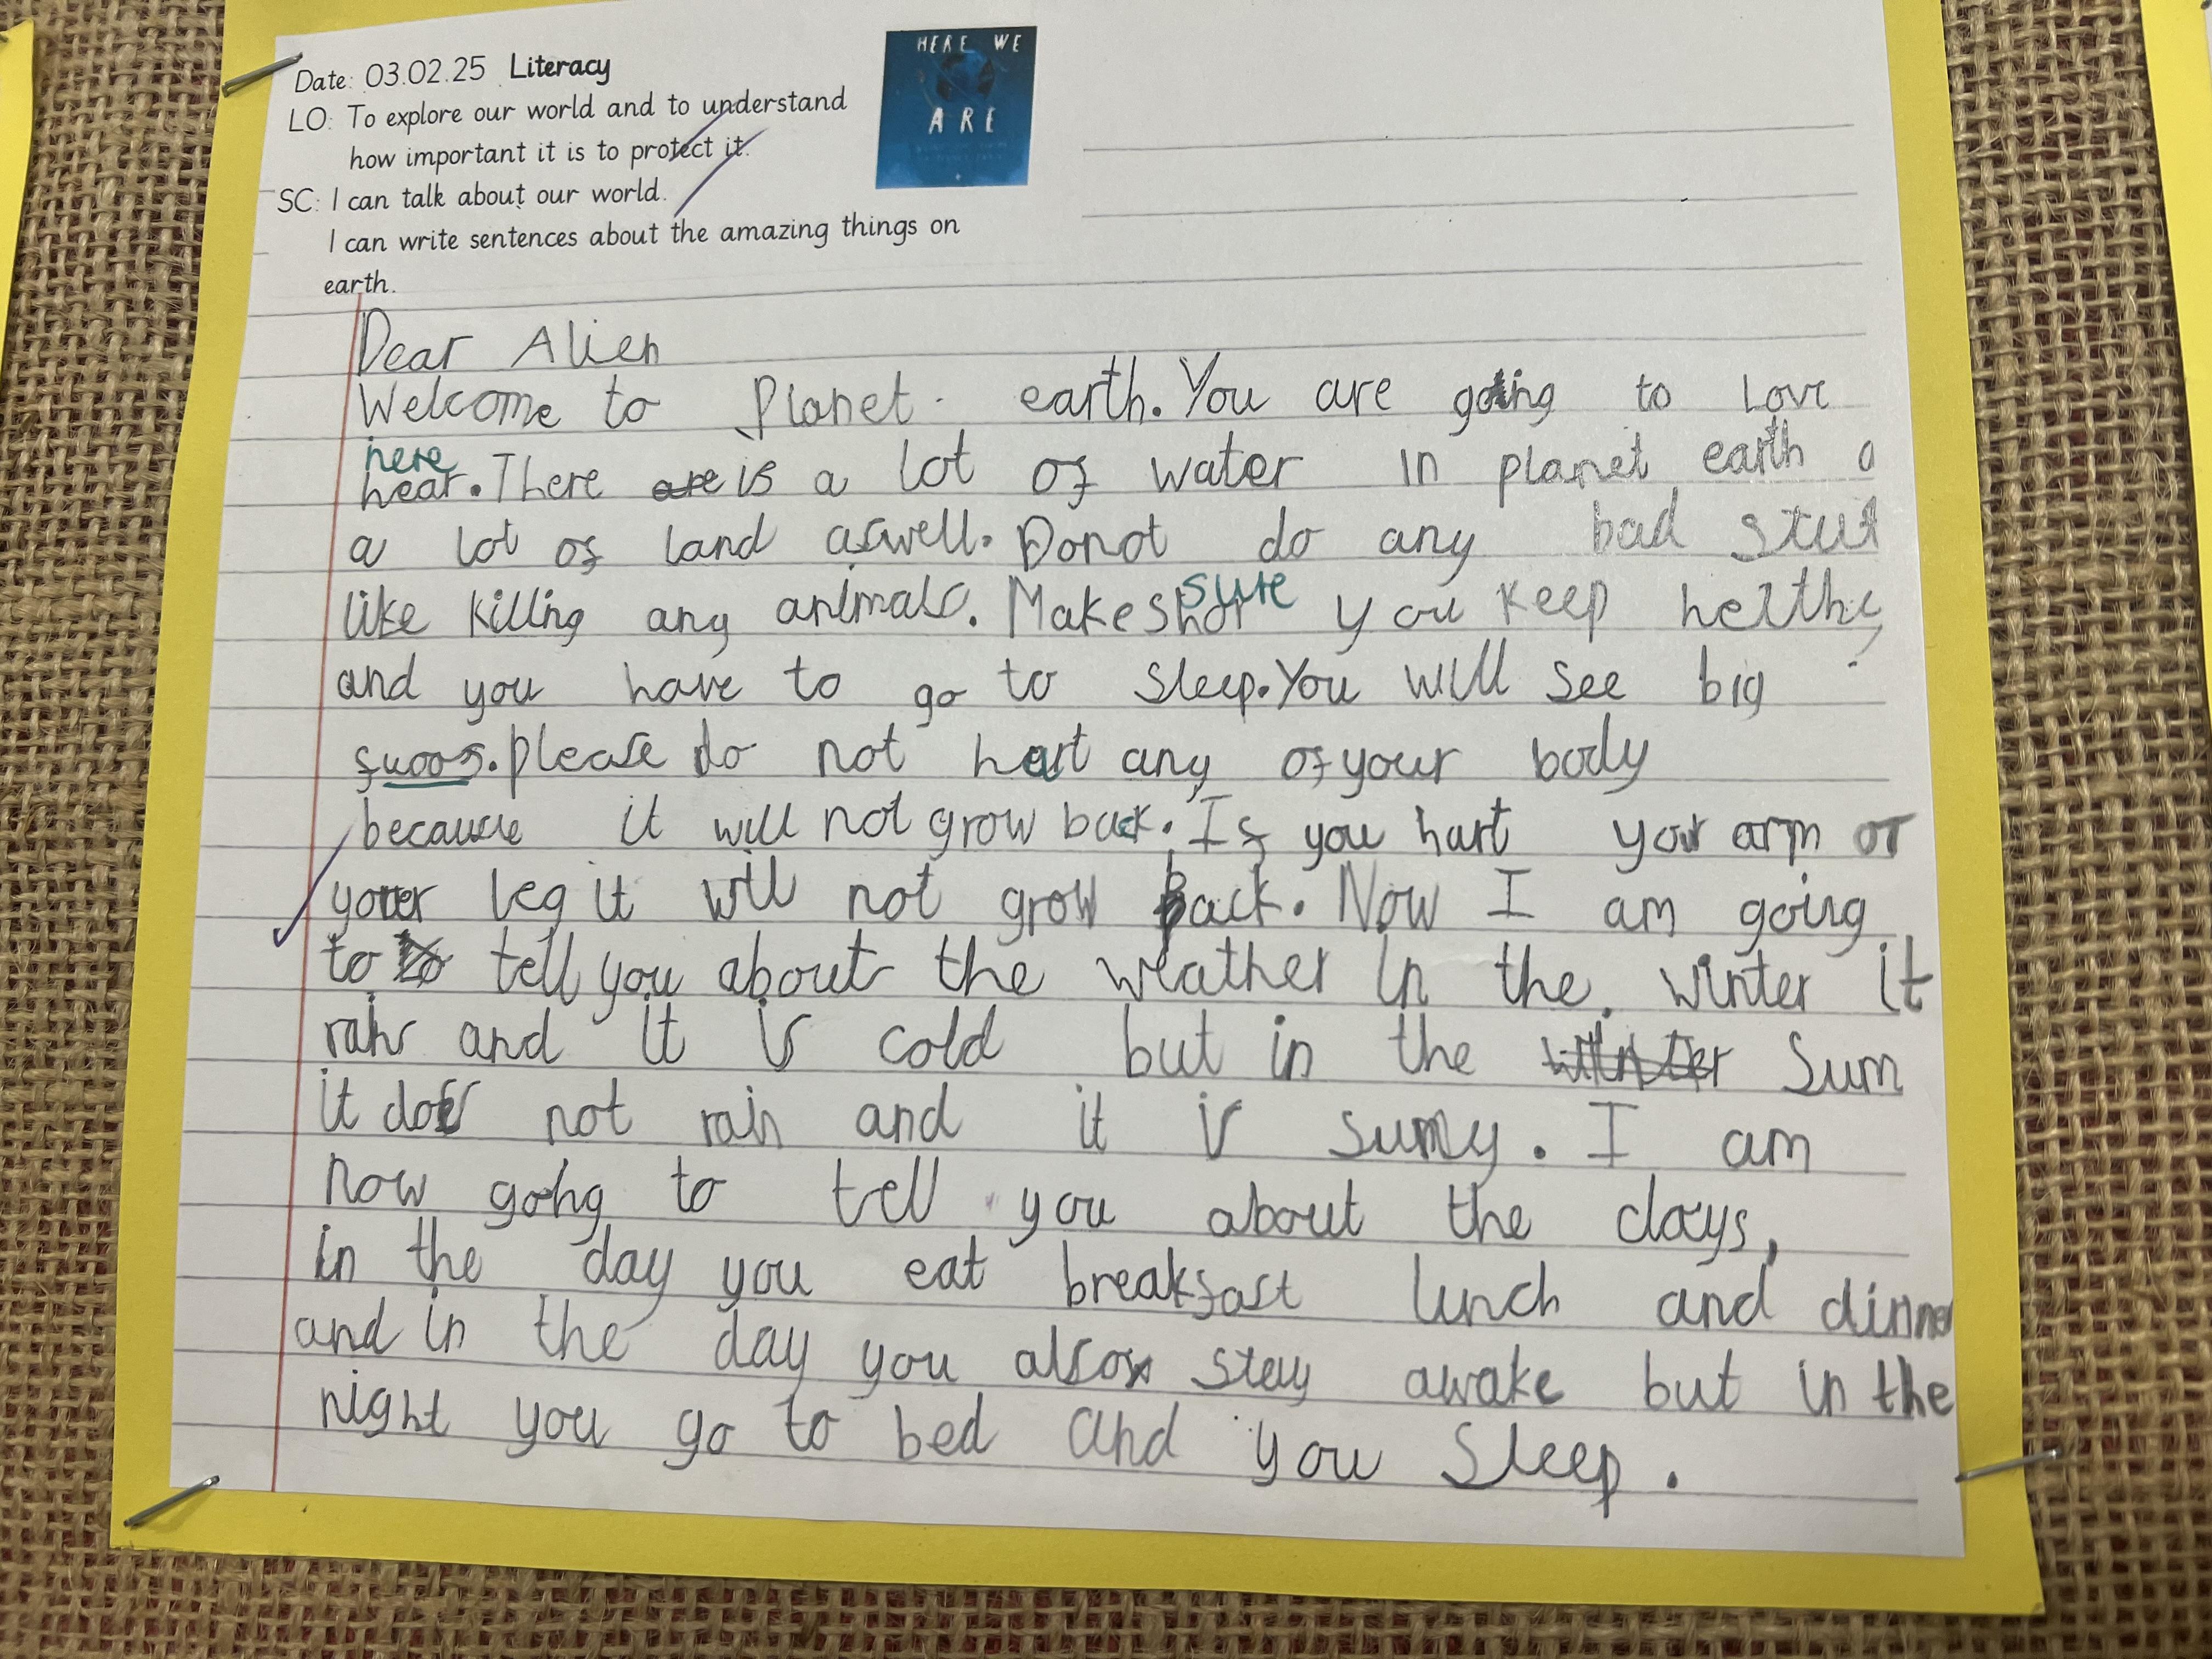 Date: 03.02.25 Literacy
LO: To explore our world and to understand
how important it is to protect it.
SC: I can talk about our world.
I can write sentences about the amazing things on
earth.
HERE WE
ARE
Dear Alien
Welcome to Planet earth. You are going to Love
here
hear. There are is a lot of water in planet earth a
a lot of land aswell. Donot do any bad stuf
sure
like killing any animals. Make shor you keep helthy
and you have to go to sleep. You will see big
please do not hurt any of your body
because it will not grow back. If you hurt your arm or
your leg it will not grow back. Now I am going
to to tell you about the weather In the winter it
rains and it is cold but in the winter Sum
it does not rain and it is sunny. I am
now going to tell you about the days,
in the day you eat breakfast lunch and dinner
and in the day you also stay awake but in the
night you go to bed and you Sleep.